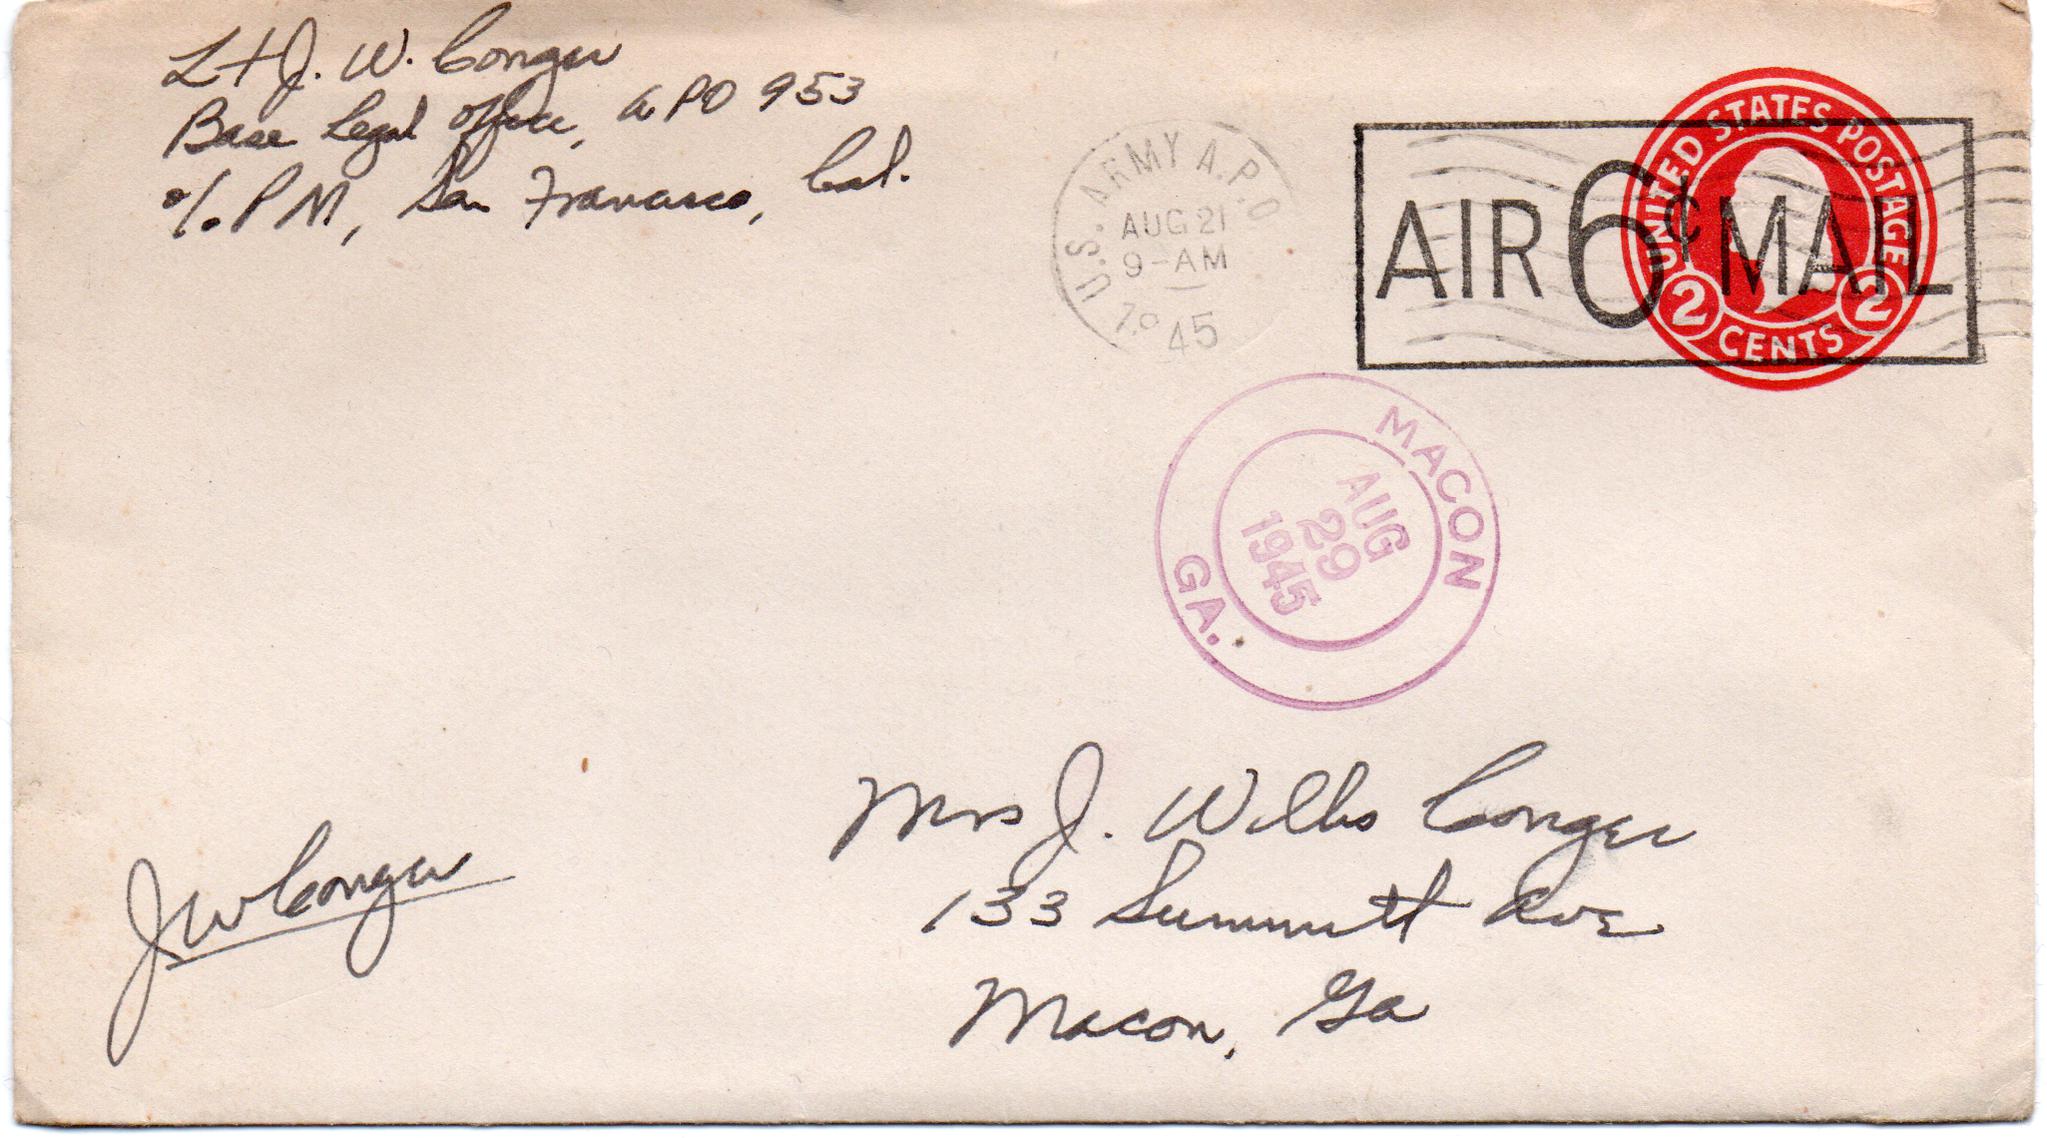 Lt J. W. Conger
Base Legal Office, APO 953
c/o PM, San Francisco, Cal.
U.S. ARMY A.P.O
AUG 21
9-AM
45
AIR 6¢ MAIL
UNITED STATES POSTAGE
2 CENTS 2
MACON
AUG
29
1945
GA.
Mrs J. Willis Conger
133 Summitt Ave
Macon, Ga
JWConger